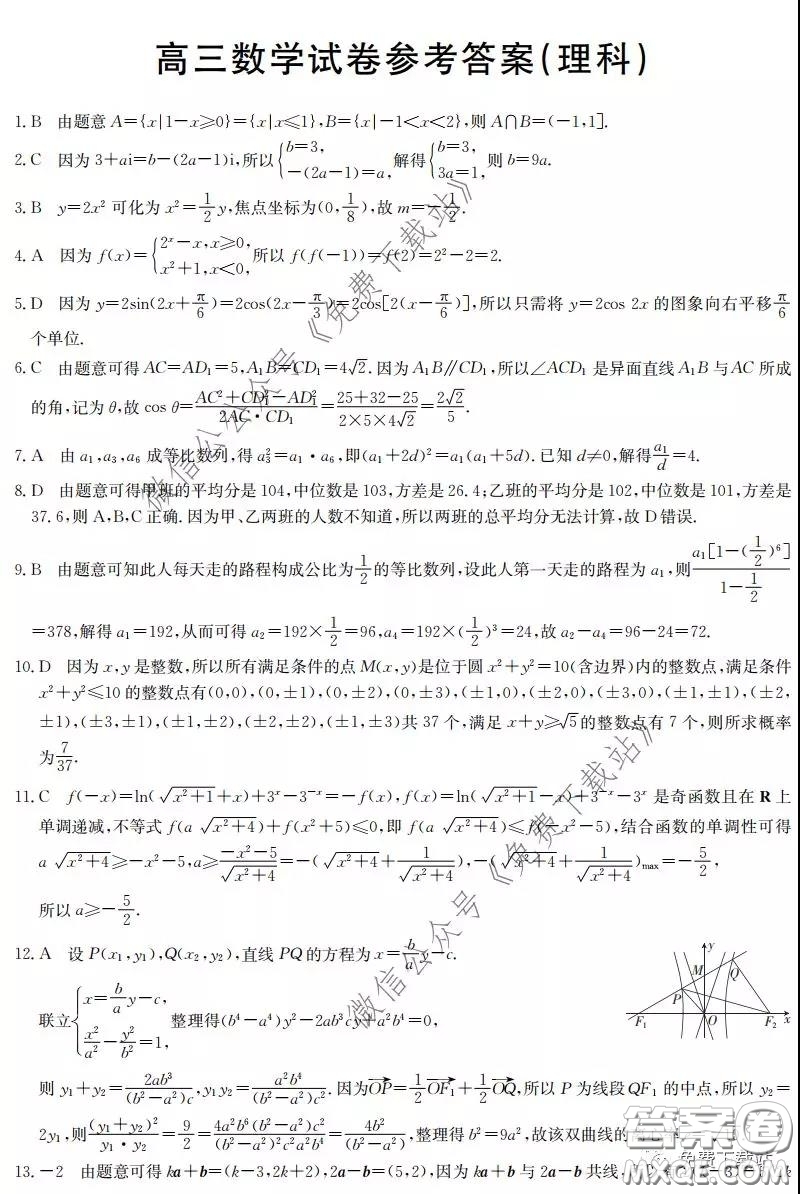 高三数学试卷参考答案(理科)
1. B 由题意 A={x|1-x≥0}={x|x≤1},B={x|-1<x<2},则 A∩B=(-1,1].
2. C 因为 3+ai=b-(2a-1)i,所以{b=3, -(2a-1)=a, 解得{b=3, 3a=1, 则 b=9a.
3. B y=2x² 可化为 x²=1/2 y,焦点坐标为(0,1/8),故 m=-1/2.
4. A 因为 f(x)={2ˣ-x,x≥0, x²+1,x<0, 所以 f(f(-1))=f(2)=2²-2=2.
5. D 因为 y=2sin(2x+π/6)=2cos(2x-π/3)=2cos[2(x-π/6)],所以只需将 y=2cos 2x 的图象向右平移π/6
个单位.
6. C 由题意可得 AC=AD₁=5,A₁B=CD₁=4√2.因为 A₁B∥CD₁,所以∠ACD₁ 是异面直线 A₁B 与 AC 所成
的角,记为 θ,故 cos θ=(AC²+CD₁²-AD₁²)/(2AC·CD₁)=(25+32-25)/(2×5×4√2)=2√2/5.
7. A 由 a₁,a₃,a₆ 成等比数列,得 a₃²=a₁·a₆,即(a₁+2d)²=a₁(a₁+5d).已知 d≠0,解得a₁/d=4.
8. D 由题意可得甲班的平均分是 104,中位数是 103,方差是 26.4;乙班的平均分是 102,中位数是 101,方差是
37.6,则 A,B,C 正确.因为甲、乙两班的人数不知道,所以两班的总平均分无法计算,故 D 错误.
9. B 由题意可知此人每天走的路程构成公比为1/2的等比数列,设此人第一天走的路程为 a₁,则a₁[1-(1/2)⁶]/(1-1/2)
=378,解得 a₁=192,从而可得 a₂=192×1/2=96,a₄=192×(1/2)³=24,故 a₂-a₄=96-24=72.
10. D 因为 x,y 是整数,所以所有满足条件的点 M(x,y)是位于圆 x²+y²=10(含边界)内的整数点,满足条件
x²+y²≤10 的整数点有(0,0),(0,±1),(0,±2),(0,±3),(±1,0),(±2,0),(±3,0),(±1,±1),(±2,
±1),(±3,±1),(±1,±2),(±2,±2),(±1,±3)共 37 个,满足 x+y≥√5的整数点有 7 个,则所求概率
为7/37.
11. C f(-x)=ln(√(x²+1)+x)+3ˣ-3⁻ˣ=-f(x),f(x)=ln(√(x²+1)-x)+3⁻ˣ-3ˣ 是奇函数且在 R 上
单调递减,不等式 f(a √(x²+4))+f(x²+5)≤0,即 f(a √(x²+4))≤f(-x²-5),结合函数的单调性可得
a √(x²+4)≥-x²-5,a≥(-x²-5)/√(x²+4)=-(√(x²+4)+1/√(x²+4)),-(√(x²+4)+1/√(x²+4))max=-5/2,
所以 a≥-5/2.
12. A 设 P(x₁,y₁),Q(x₂,y₂),直线 PQ 的方程为 x=b/a y-c.
联立{x=b/a y-c, x²/a²-y²/b²=1, 整理得(b⁴-a⁴)y²-2ab³cy+a²b⁴=0,
y
M
Q
P
F₁
O
F₂
x
则 y₁+y₂=2ab³/((b²-a²)c),y₁y₂=a²b⁴/((b²-a²)c²).因为OP→=1/2 OF₁→+1/2 OQ→,所以 P 为线段 QF₁ 的中点,所以 y₂=
2y₁,则(y₁+y₂)²/(y₁·y₂)=9/2=4a²b⁶(b²-a²)c²/((b²-a²)²c²a²b⁴)=4b²/(b²-a²),整理得 b²=9a²,故该双曲线的
13. -2 由题意可得 ka+b=(k-3,2k+2),2a-b=(5,2),因为 ka+b 与 2a-b 共线,
微信公众号《免费下载站》
微信公众号《免费下载站》
答案圈
MXQE.COM
免费下载站